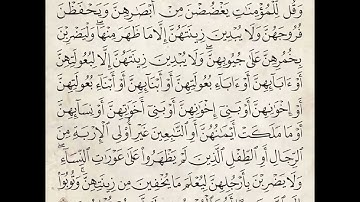 وَقُل لِّلْمُؤْمِنَٰتِ يَغْضُضْنَ مِنْ أَبْصَٰرِهِنَّ وَيَحْفَظْنَ
فُرُوجَهُنَّ وَلَا يُبْدِينَ زِينَتَهُنَّ إِلَّا مَا ظَهَرَ مِنْهَا ۖ وَلْيَضْرِبْنَ
بِخُمُرِهِنَّ عَلَىٰ جُيُوبِهِنَّ ۖ وَلَا يُبْدِينَ زِينَتَهُنَّ إِلَّا لِبُعُولَتِهِنَّ
أَوْ ءَابَآئِهِنَّ أَوْ ءَابَآءِ بُعُولَتِهِنَّ أَوْ أَبْنَآئِهِنَّ أَوْ أَبْنَآءِ بُعُولَتِهِنَّ
أَوْ إِخْوَٰنِهِنَّ أَوْ بَنِىٓ إِخْوَٰنِهِنَّ أَوْ بَنِىٓ أَخَوَٰتِهِنَّ أَوْ نِسَآئِهِنَّ
أَوْ مَا مَلَكَتْ أَيْمَٰنُهُنَّ أَوِ ٱلتَّٰبِعِينَ غَيْرِ أُو۟لِى ٱلْإِرْبَةِ مِنَ
ٱلرِّجَالِ أَوِ ٱلطِّفْلِ ٱلَّذِينَ لَمْ يَظْهَرُوا۟ عَلَىٰ عَوْرَٰتِ ٱلنِّسَآءِ ۖ
وَلَا يَضْرِبْنَ بِأَرْجُلِهِنَّ لِيُعْلَمَ مَا يُخْفِينَ مِن زِينَتِهِنَّ ۚ وَتُوبُوٓا۟